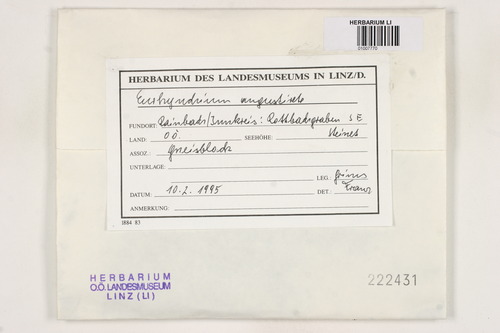 HERBARIUM LI
01007770
HERBARIUM DES LANDESMUSEUMS IN LINZ/D.
Eurhynchium angustirete
FUNDORT: Rainbach/Innkreis: Rottbachgraben SE
LAND: OÖ. SEEHÖHE:
ASSOZ.: Gneisblock
UNTERLAGE:
LEG.: Grims
DATUM: 10.2.1995 DET.: Franz
ANMERKUNG:
1884 83
HERBARIUM
O.Ö. LANDESMUSEUM
LINZ (LI)
222431